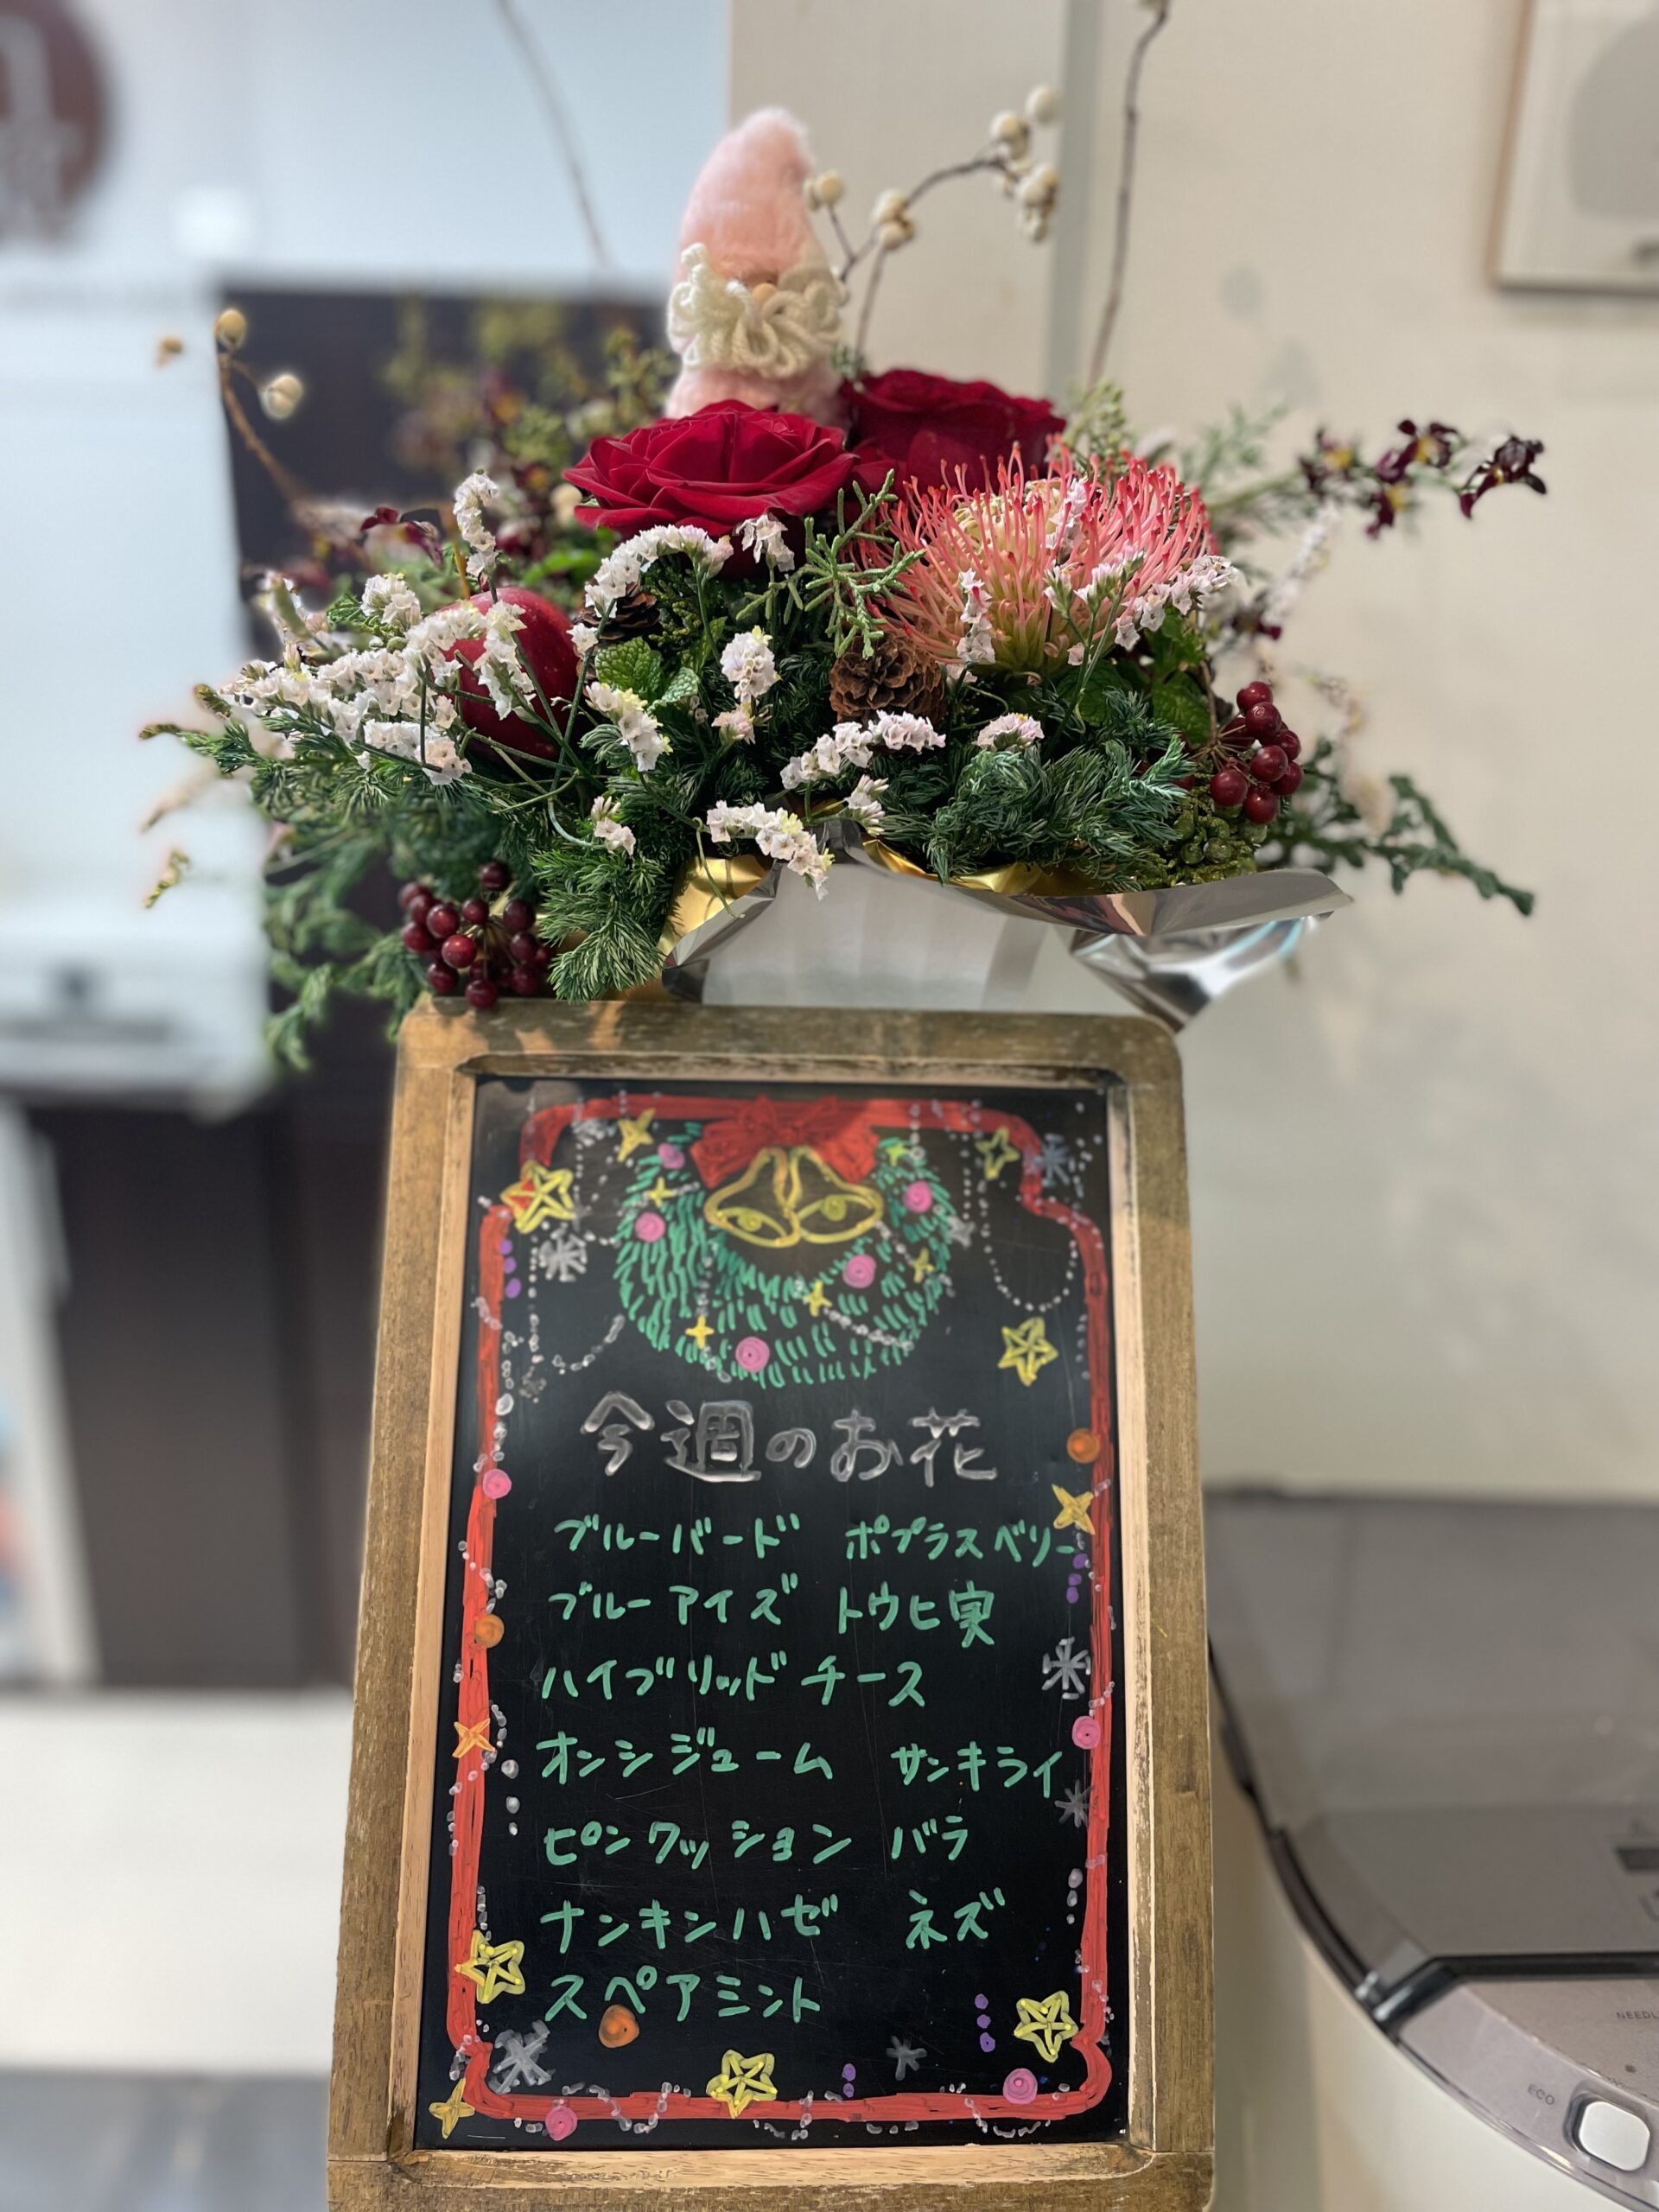 今週のお花
ブルーバード ポプラスベリー
ブルーアイズ トウヒ実
ハイブリッドチース
オンシジューム サンキライ
ピンクッション バラ
ナンキンハゼ ネズ
スペアミント
NEEDL
ECO